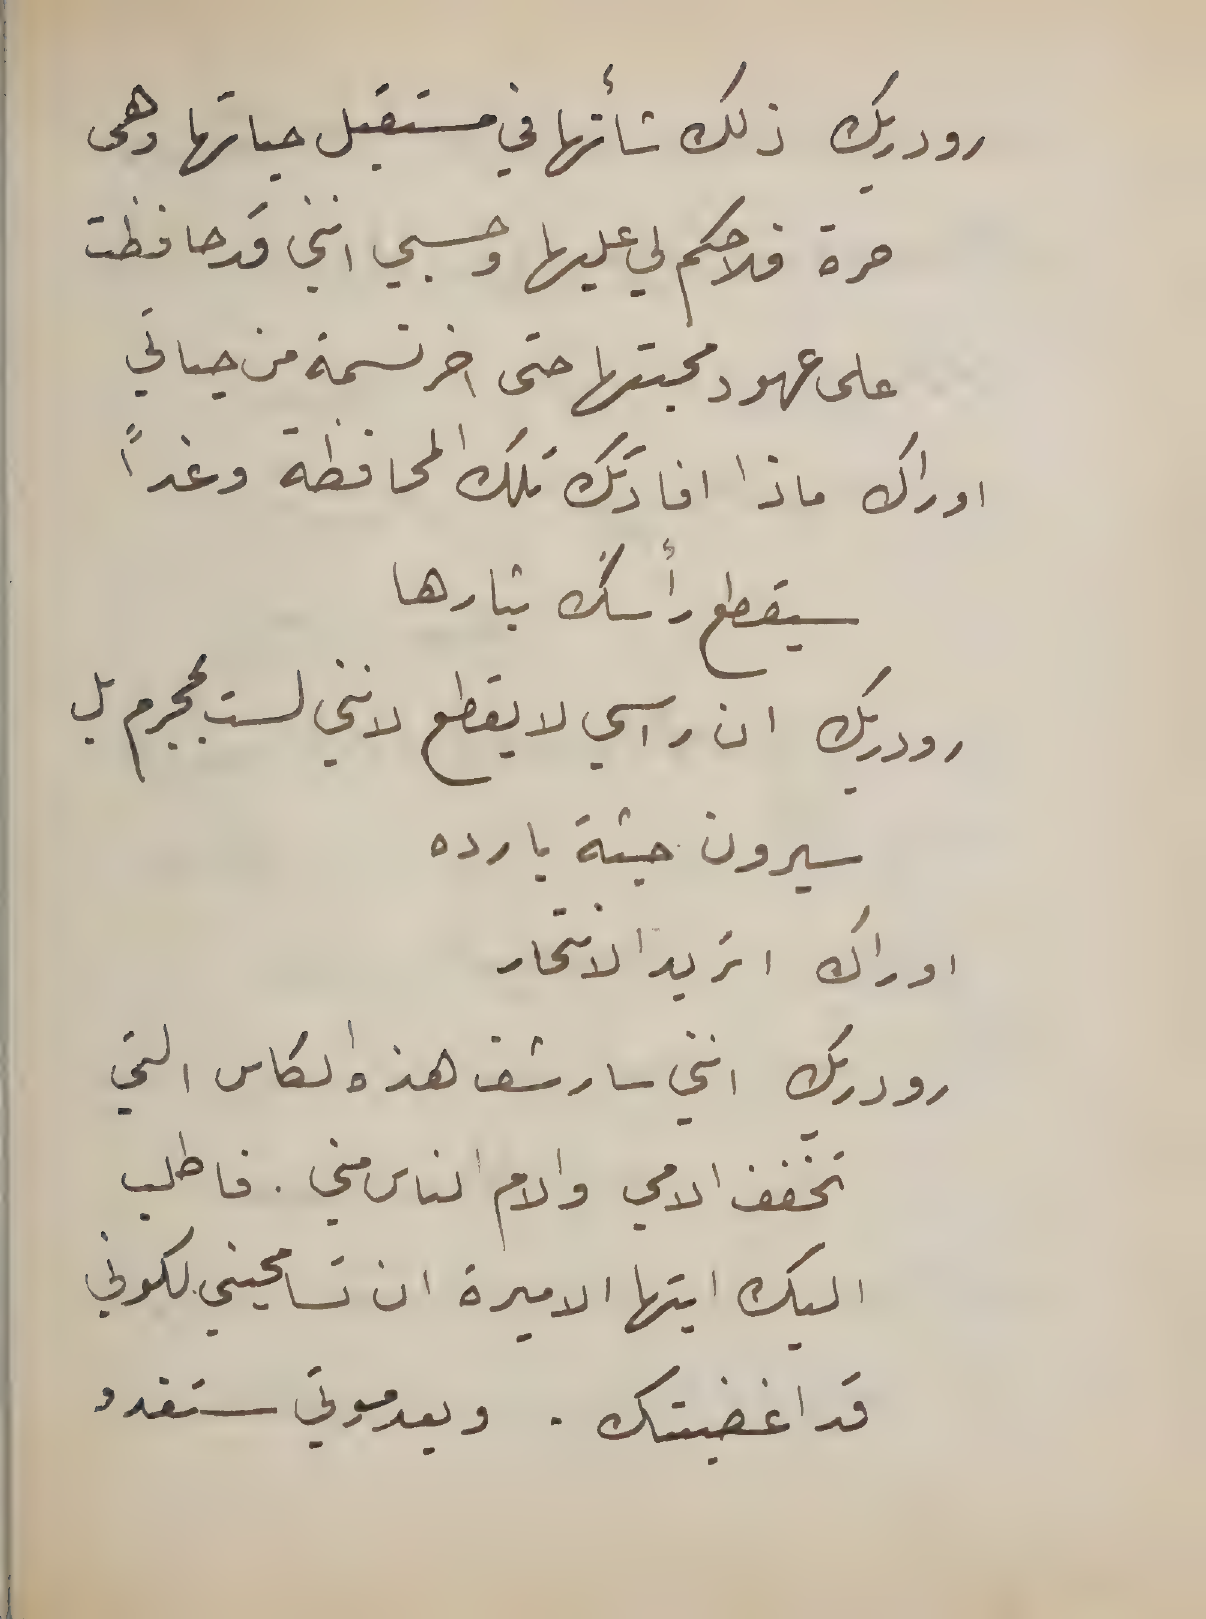 رودريك ذلك شأنها في مستقبل حياتها وهى
حرة فلا حكم لي عليها وحسبي انني قد حافظت
على عهود محبتها حتى اخر نسمة من حياتي
اوراك ماذا افادتك تلك المحافظة وغداً
سيقطع رأسك بثارها
رودريك ان راسي لا يقطع لانني لست بمجرم بل
سيرون جثة بارده
اوراك اتريد الانتحار
رودريك انني سارشف هذه الكاس التي
تخفف الامي والام الناس مني . فاطلب
اليك ايتها الاميرة ان تسامحيني لكوني
قد اغضبتك . وبعد موتي ستغدو